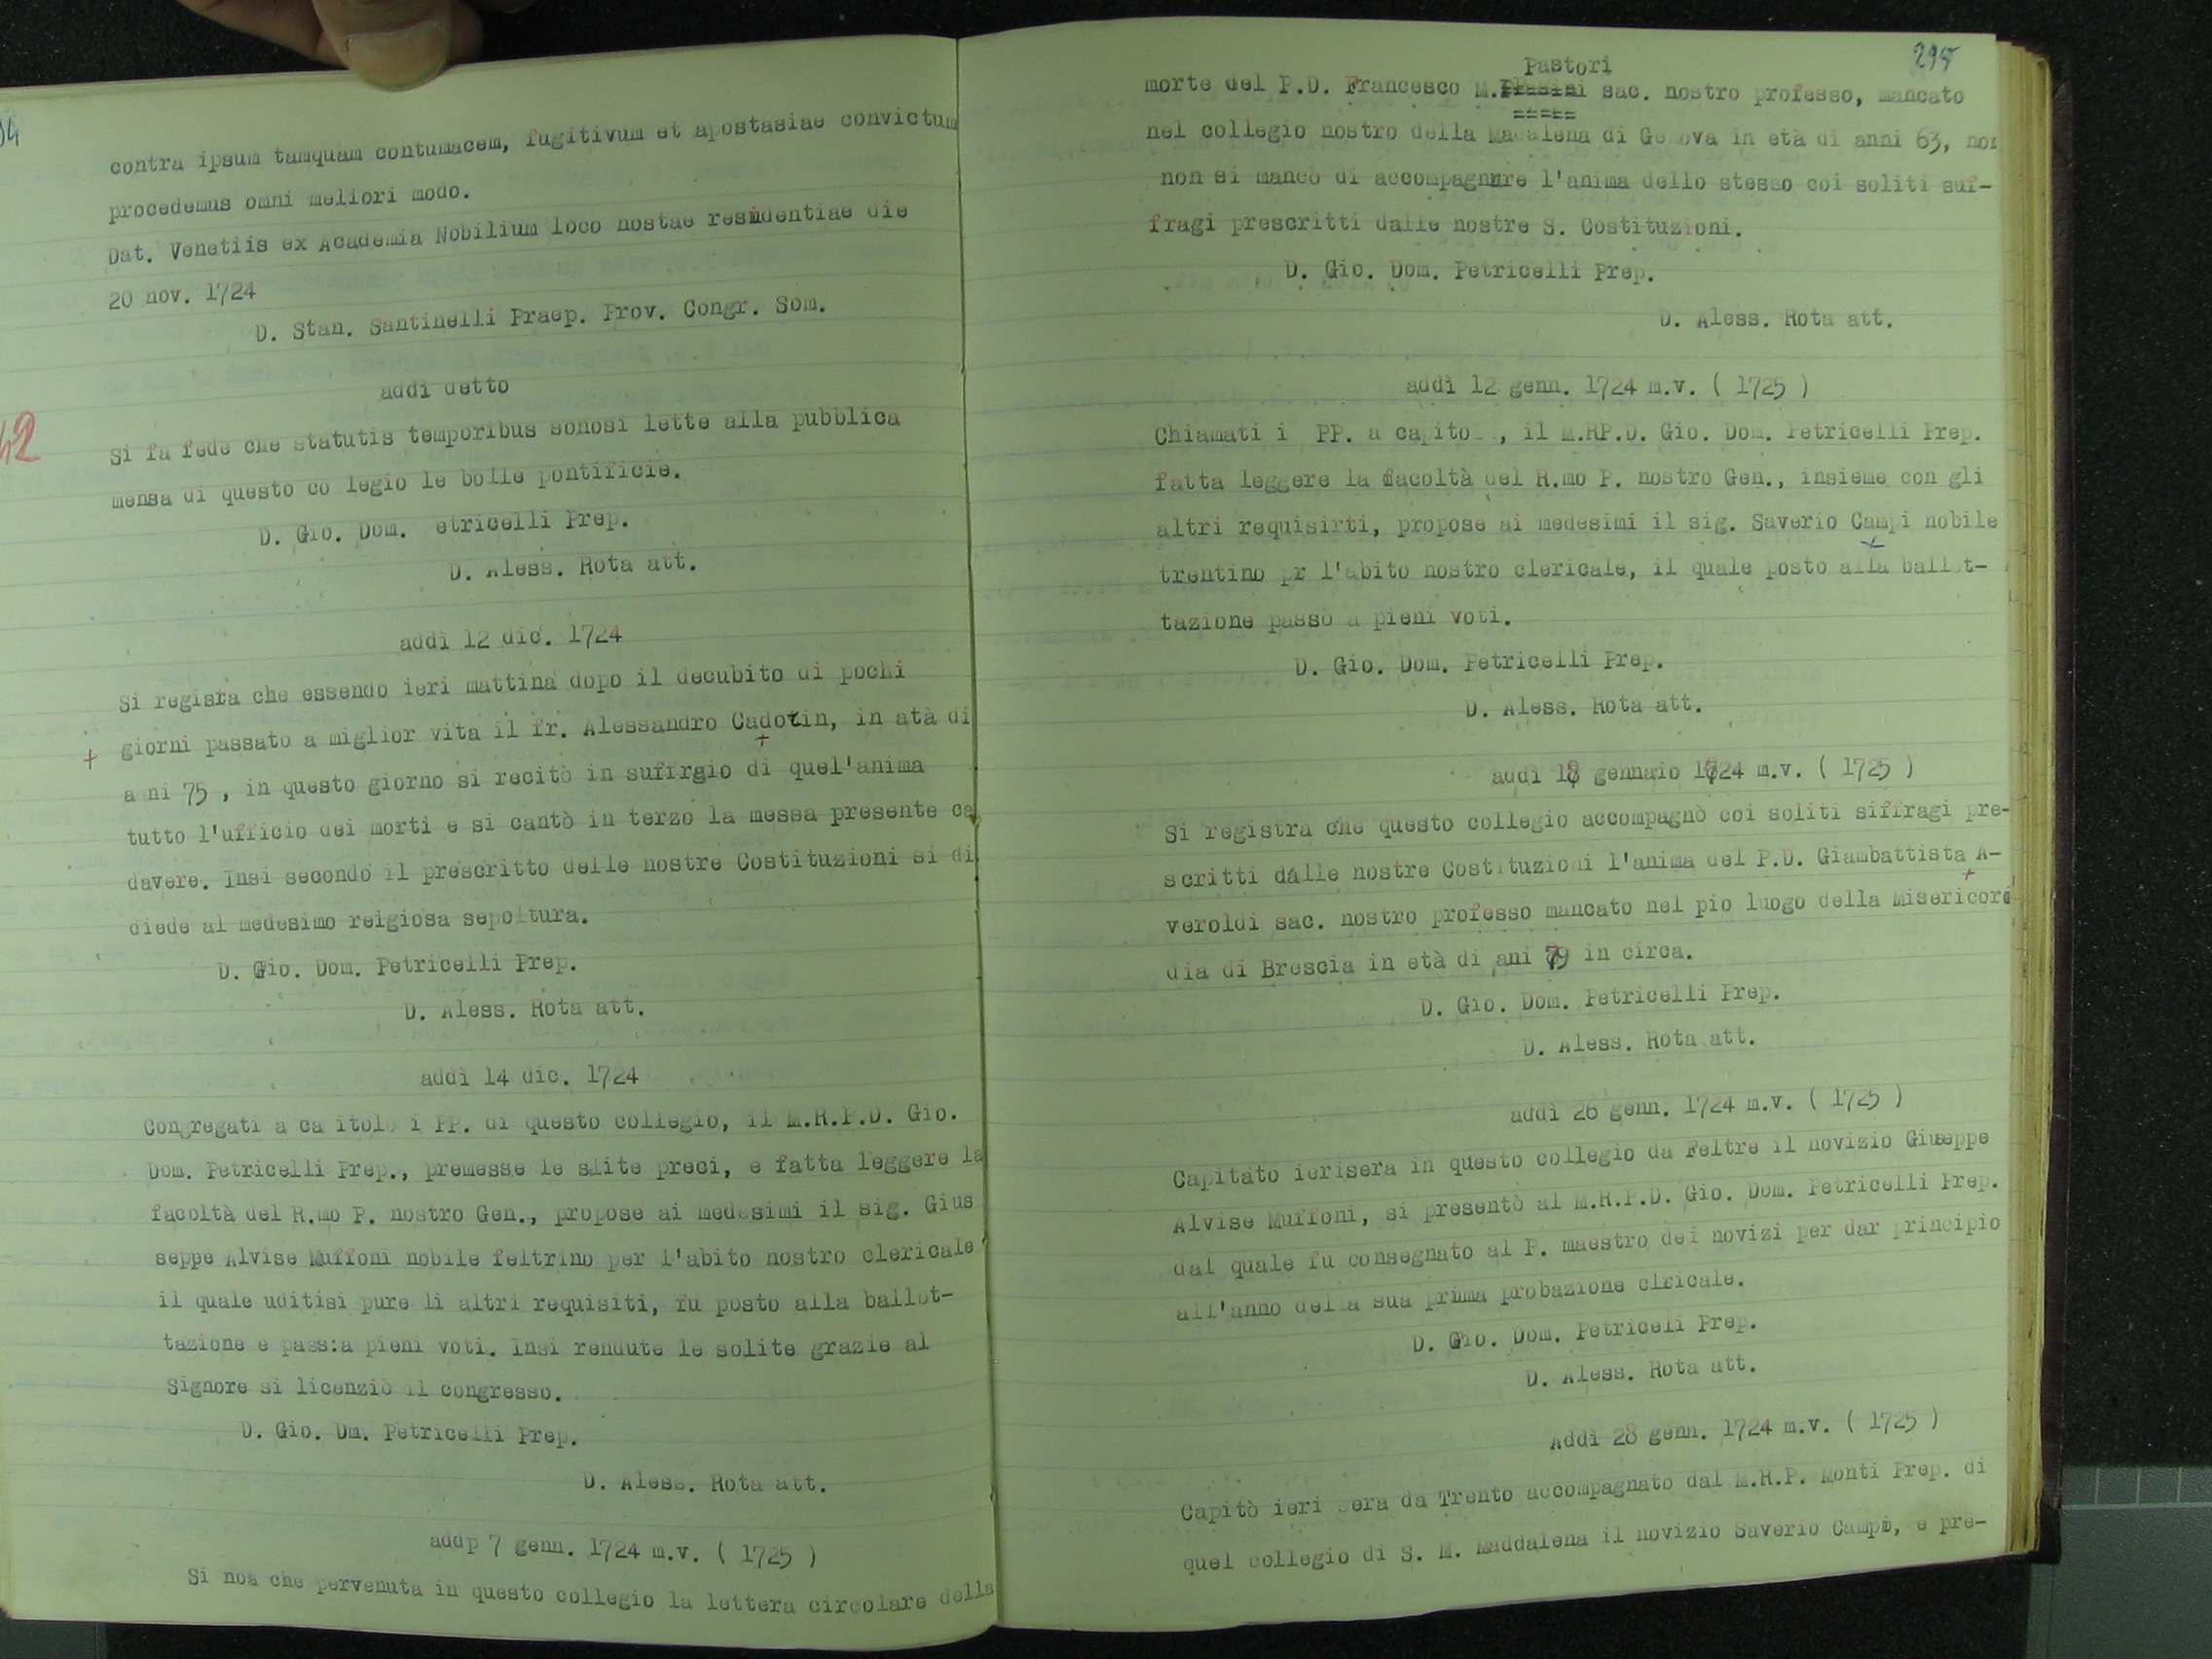 94
contra ipsum tamquam contumacem, fugitivum et apostasiae convictum
procedemus omni meliori modo.
Dat. Venetiis ex Academia Nobilium loco nostae residentiae die
20 nov. 1724
D. Stan. Santinelli Praep. Prov. Congr. Som.
addì detto
42
Si fa fede che statutis temporibus sonosi lette alla pubblica
mensa di questo co legio le bolle pontificie.
D. Gio. Dom. etricelli Prep.
D. Aless. Rota att.
addì 12 dic. 1724
Si regista che essendo ieri mattina dopo il decubito di pochi
+ giorni passato a miglior vita il fr. Alessandro Cadotin, in atà di
a ni 75 , in questo giorno si recitò in suffrgio di quel'anima
tutto l'ufficio dei morti e si cantò in terzo la messa presente ca
davere. Insi secondo il prescritto delle nostre Costituzioni si di
diede al medesimo reigiosa sepoltura.
D. Gio. Dom. Petricelli Prep.
D. Aless. Rota att.
addì 14 dic. 1724
Congregati a ca itolo i PP. di questo collegio, il M.R.P.D. Gio.
Dom. Petricelli Prep., premesse le slite preci, e fatta leggere la
facoltà del R.mo P. nostro Gen., propose ai medesimi il sig. Gius
seppe Alvise Muffoni nobile feltrino per l'abito nostro clericale
il quale uditisi pure li altri requisiti, fu posto alla ballot-
tazione e pass:a pieni voti. Insi rendute le solite grazie al
Signore si licenziò il congresso.
D. Gio. Dm. Petricelli Prep.
D. Aless. Rota att.
addp 7 genn. 1724 m.v. ( 1725 )
Si noa che pervenuta in questo collegio la lettera circolare della
295
Pastori
morte del P.D. Francesco M. sac. nostro professo, mancato
nel collegio nostro della Madalena di Genova in età di anni 63, non
non si mancò di accompagnnre l'anima dello stesso coi soliti suf-
fragi prescritti dalle nostre S. Costituzioni.
D. Gio. Dom. Petricelli Prep.
D. Aless. Rota att.
addì 12 genn. 1724 m.v. ( 1725 )
Chiamati i PP. a capitolo, il M.RP.D. Gio. Dom. Petricelli Prep.
fatta leggere la facoltà del R.mo P. nostro Gen., insieme con gli
altri requisirti, propose ai medesimi il sig. Saverio Campi nobile
trentino pr l'abito nostro clericale, il quale posto alla ballot-
tazione passò a pieni voti.
D. Gio. Dom. Petricelli Prep.
D. Aless. Rota att.
addì 18 gennaio 1724 m.v. ( 1725 )
Si registra che questo collegio accompagnò coi soliti siffragi pre-
scritti dalle nostre Costituzioni l'anima del P.D. Giambattista A-
veroldi sac. nostro professo mancato nel pio luogo della Misericord
dia di Brescia in età di ani 79 in circa.
D. Gio. Dom. Petricelli Prep.
D. Aless. Rota att.
addì 26 genn. 1724 m.v. ( 1725 )
Capitato ierisera in questo collegio da Feltre il novizio Giuseppe
Alvise Muffoni, si presentò al M.R.P.D. Gio. Dom. Petricelli Prep.
dal quale fu consegnato al P. maestro dei novizi per dar principio
all'anno della sua prima probazione clricale.
D. Gio. Dom. Petriceli Prep.
D. Aless. Rota att.
Addì 28 genn. 1724 m.v. ( 1725 )
Capitò ieri sera da Trento accompagnato dal M.R.P. Monti Prep. di
quel collegio di S. M. Maddalena il novizio Saverio Campi, e pre-